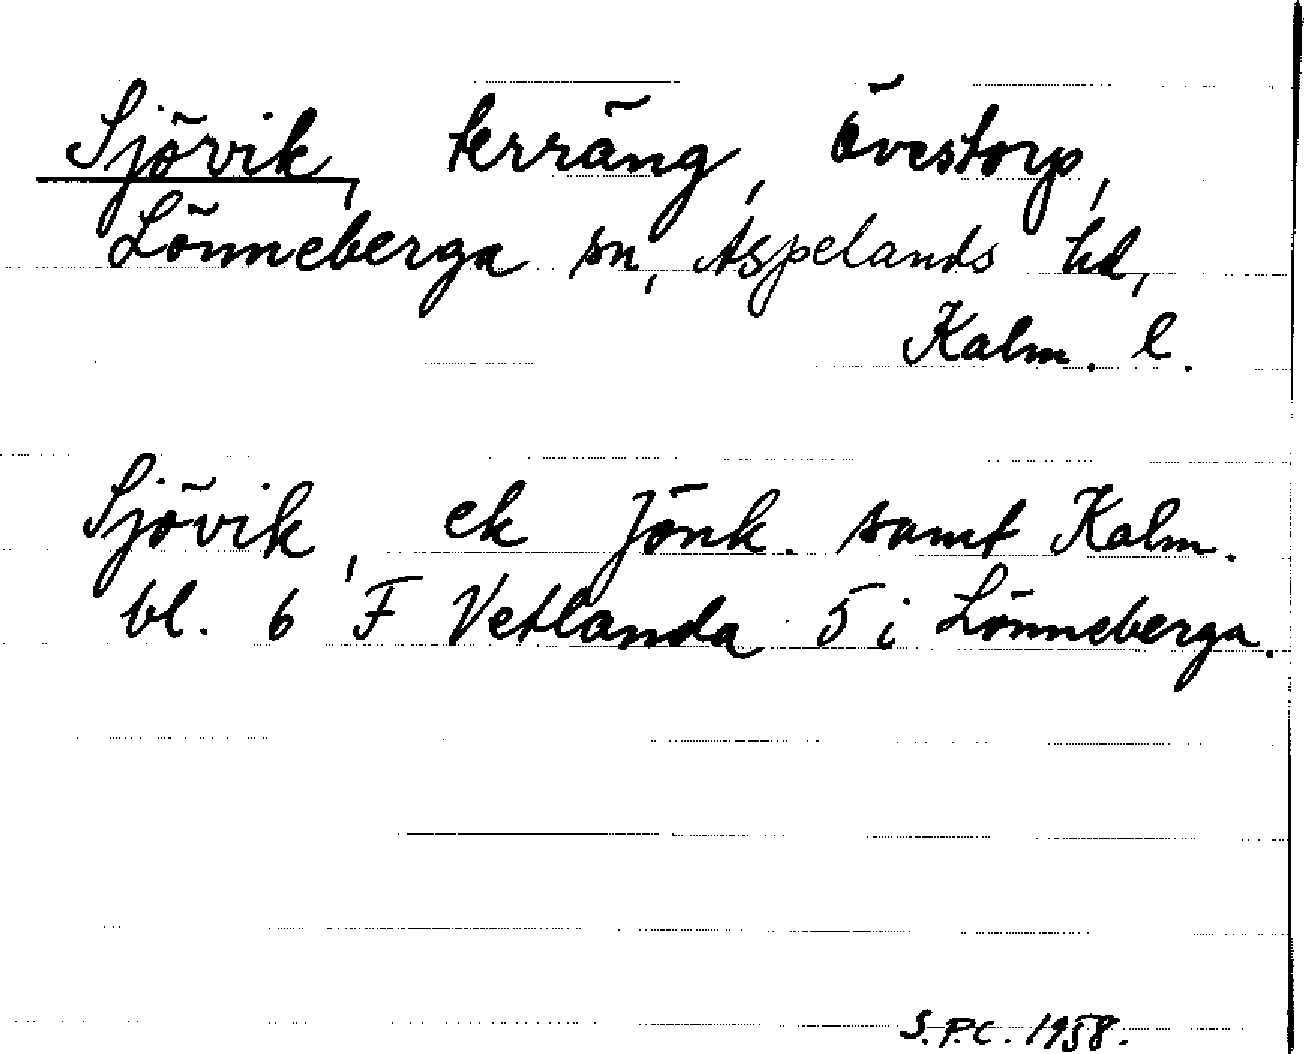 Sjövik, terräng, Övestorp,
Lönneberga sn, Aspelands hd,
Kalm. l.
Sjövik, ek Jönk. samt Kalm.
bl. 6 F Vetlanda 5 i Lönneberga.
S.P.C. 1958.